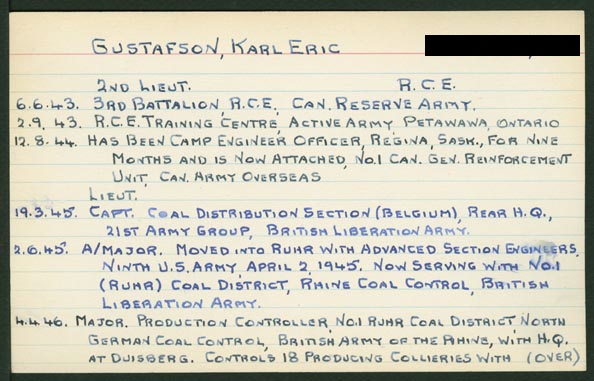 GUSTAFSON, KARL ERIC
2ND LIEUT. R.C.E.
6.6.43. 3RD BATTALION, R.C.E., CAN. RESERVE ARMY.
2.9.43. R.C.E. TRAINING CENTRE, ACTIVE ARMY, PETAWAWA, ONTARIO
12.8.44. HAS BEEN CAMP ENGINEER OFFICER, REGINA, SASK., FOR NINE
MONTHS AND IS NOW ATTACHED, NO.1 CAN. GEN. REINFORCEMENT
UNIT, CAN. ARMY OVERSEAS
LIEUT.
19.3.45. CAPT. COAL DISTRIBUTION SECTION (BELGIUM), REAR H.Q.,
21ST ARMY GROUP, BRITISH LIBERATION ARMY.
2.6.45. A/MAJOR. MOVED INTO RUHR WITH ADVANCED SECTION ENGINEERS,
NINTH U.S. ARMY, APRIL 2, 1945. NOW SERVING WITH NO.1
(RUHR) COAL DISTRICT, RHINE COAL CONTROL, BRITISH
LIBERATION ARMY.
4.4.46. MAJOR. PRODUCTION CONTROLLER, NO.1 RUHR COAL DISTRICT, NORTH
GERMAN COAL CONTROL, BRITISH ARMY OF THE RHINE, WITH H.Q.
AT DUISBERG. CONTROLS 18 PRODUCING COLLIERIES WITH (OVER)